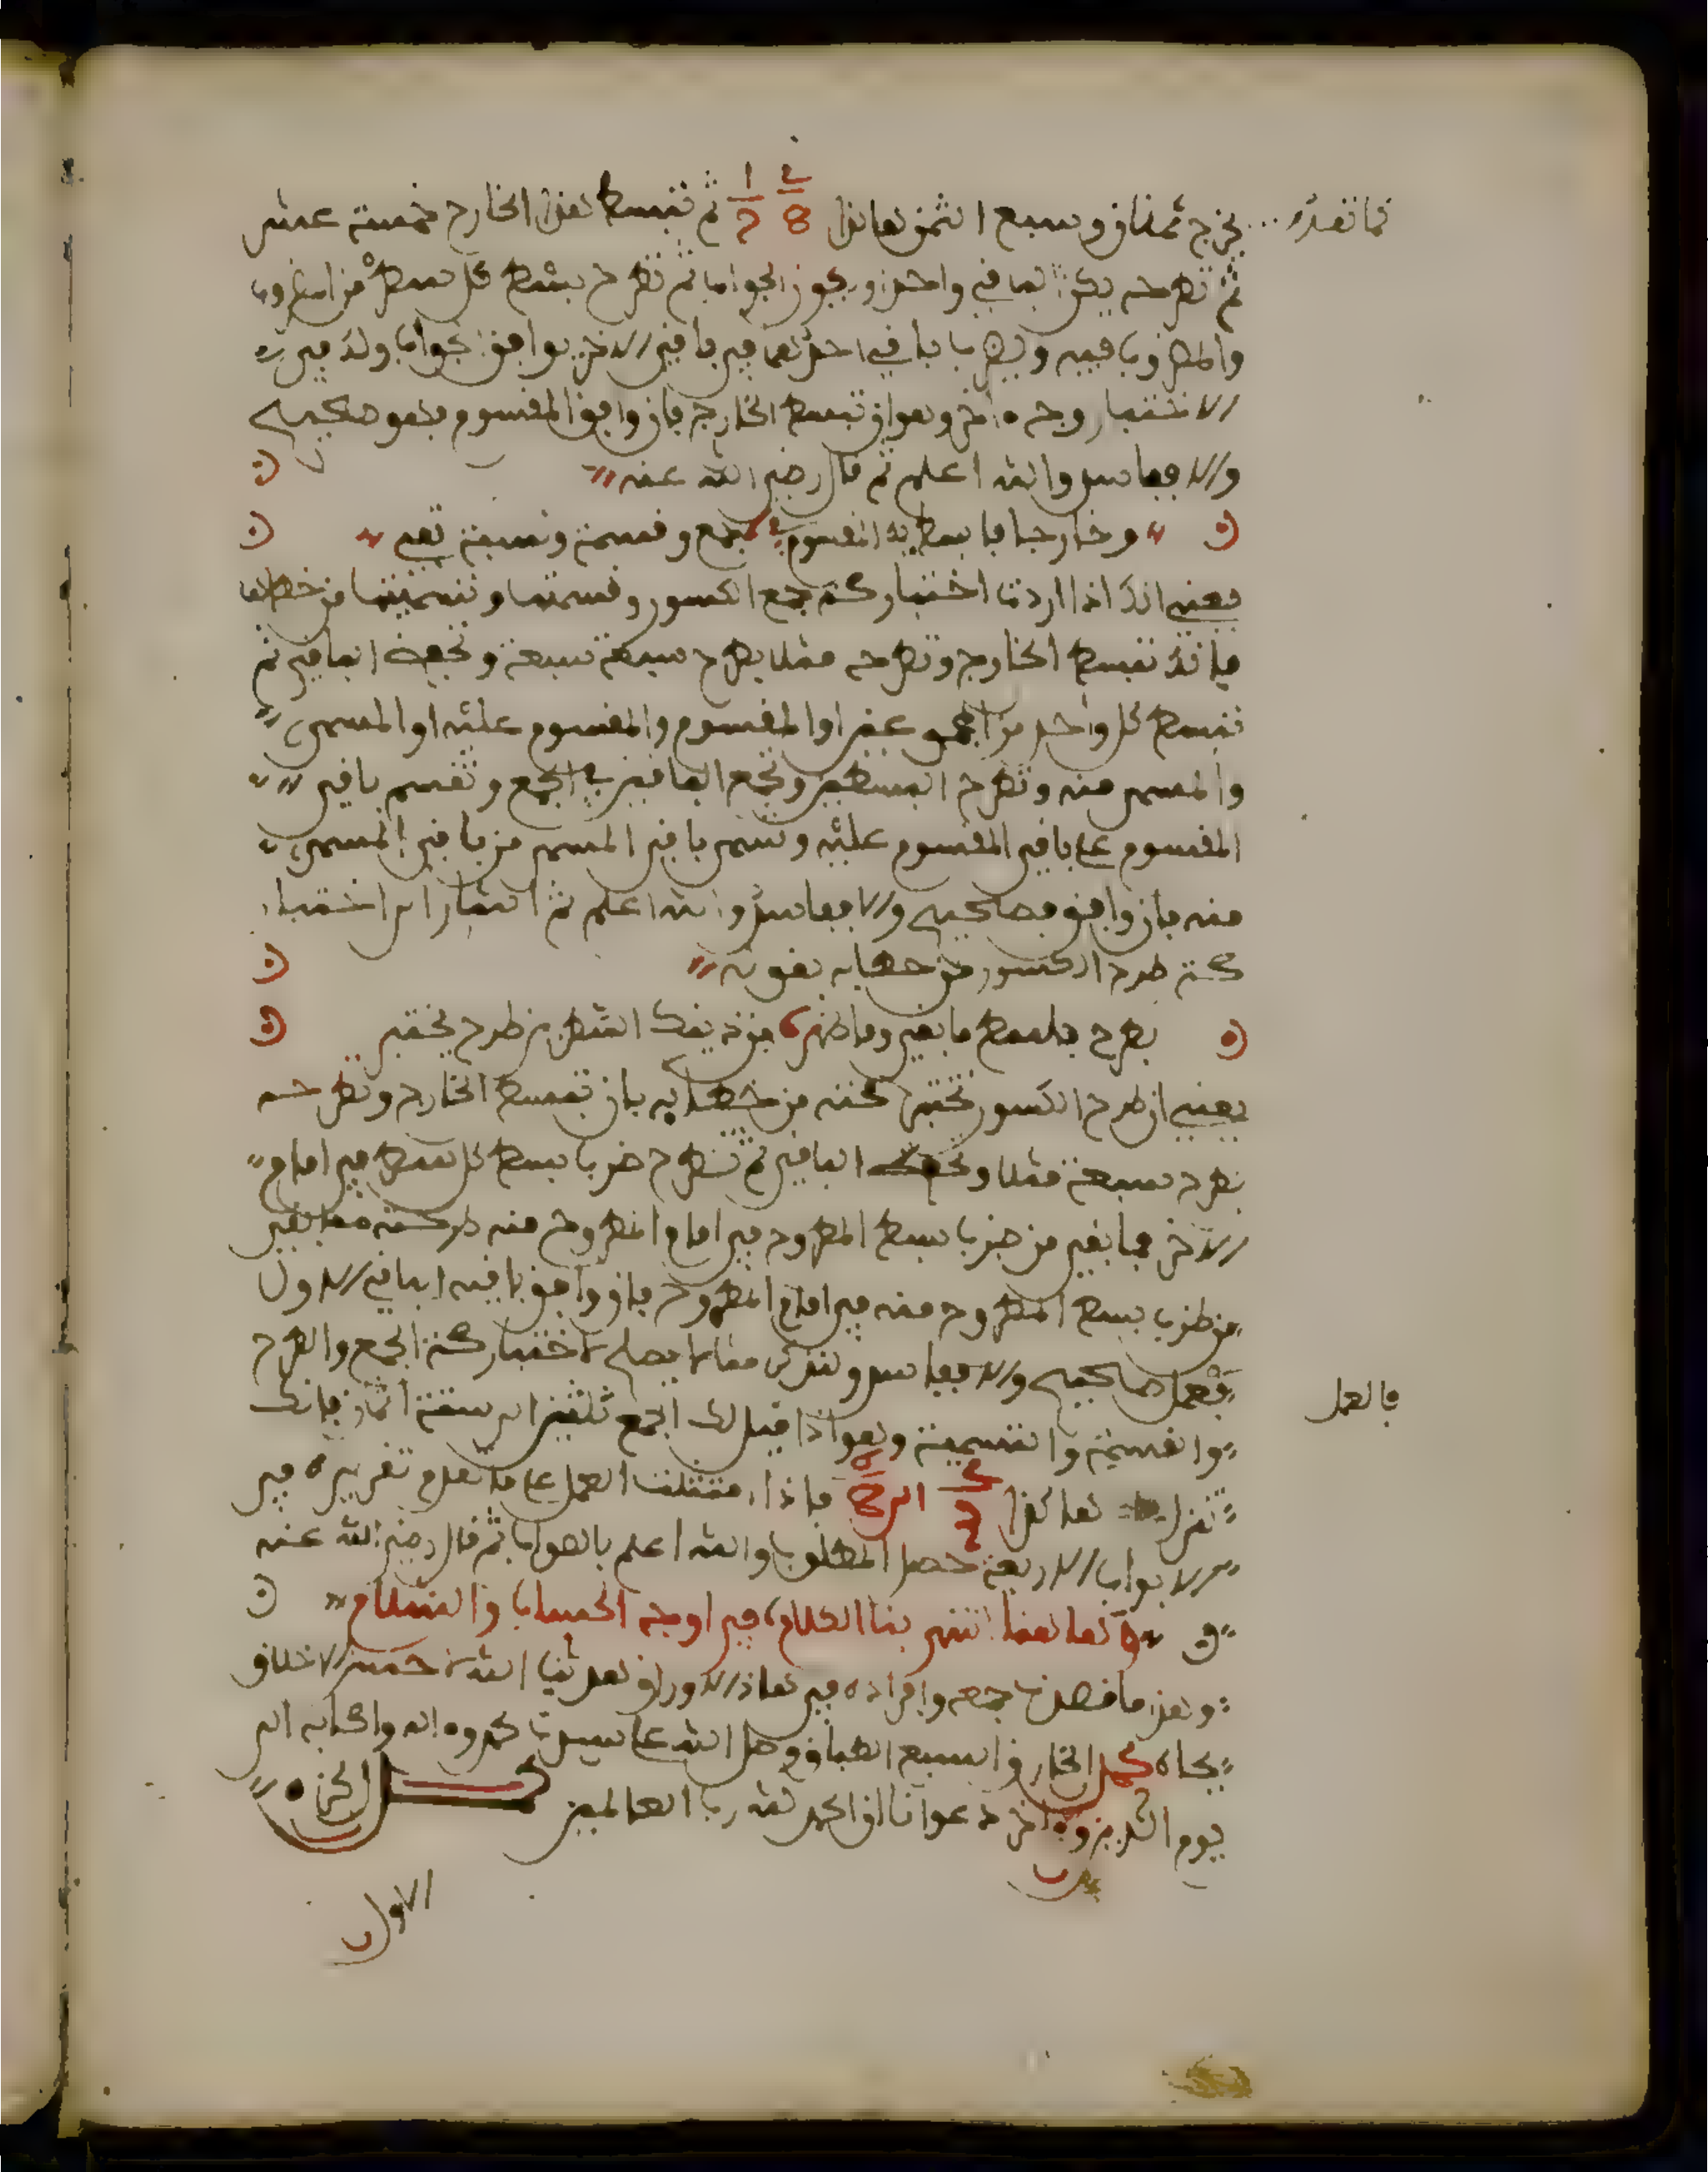 كما تقدم
يخرج ثمنان وسبع الثمن هاكذا 1/7 2/8 ثم تبسط هذا الخارج خمسة عشر
ثم تطرحه يكن الباقي واحدا ويجوز الجواب ثم تطرح بسط كل بسط من المضروب
والمضروب فيه وتضرب باقي احدهما في باقي الاخر يوافق الجواب ولك في
الاختبار وجه اخر وهو ان تبسط الخارج فان وافق المقسوم فهو صحيح
والا ففاسد والله اعلم ثم قال رضي الله عنه
وخارجا فابسط به المقسوم جمع وقسمة ونسبة تفي
يعني انك اذا اردت اختبار صحة جمع الكسور وقسمتها وتسميتها من خطإها
فانك تبسط الخارج وتطرحه مثلا بطرح سبعة سبعة وتحفظ الباقي ثم
تبسط كل واحد من المجموعين او المقسوم والمقسوم عليه او المسمى
والمسمى منه وتطرح البسطين وتجمع الباقيين في الجمع وتقسم باقي
المقسوم على باقي المقسوم عليه وتسمي باقي المسمى من باقي المسمى
منه فان وافق فصحيح والا ففاسد والله اعلم ثم اشار الى اختبار
صحة طرح الكسور من خطإه بقوله
بطرح فابسط ما بقي وما ظهر من طرح يختبر
يعني ان طرح الكسور تختبر صحته من خطإه بان تبسط الخارج وتطرحه
بطرح سبعة مثلا وتحفظ الباقي ثم تطرح ضرب بسط كل بسط في امام
الاخر فما بقي من ضرب بسط المطروح في امام المطروح منه طرحته مما بقي
من ضرب بسط المطروح منه في امام المطروح فان وافق باقيه الباقي الاول
فالعمل
فعمل صحيح والا ففاسد ولنذكر مثالا يصلح لاختبار صحة الجمع والطرح
والقسمة والتسمية وهو اذا قيل لك اجمع ثلثين الى ستة اثمان فانك
تنزل هاكذا 2/3 الى 6/8 فاذا امتثلت العمل على ما تقدم تقريره في
الابواب الاربعة حصل المطلوب والله اعلم بالصواب ثم قال رضي الله عنه
وهاهنا انتهى بنا الكلام في اوجه الحساب والسلام
وهذا ما قصدنا جمعه وافراده في هاذه الاوراق هدانا الله لاحسن الاخلاق
بجاه محمد الخارق السبع الطباق وصلى الله على سيدنا محمد واله واصحابه الى
يوم الدين واخر دعوانا ان الحمد لله رب العالمين كمل الجزء
الاول